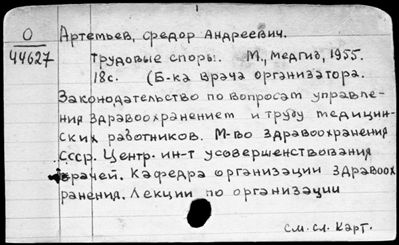 О
44627
Артемьев, Федор Андреевич.
Трудовые споры. М., Медгиз, 1955.
18с. (Б-ка врача организатора.
Законодательство по вопросам управле-
ния здравоохранением и труду медицин-
ских работников. М-во здравоохранения
СССР. Центр. ин-т усовершенствования
врачей. Кафедра организации здравоох
ранения. Лекции по организации
См. сл. карт.